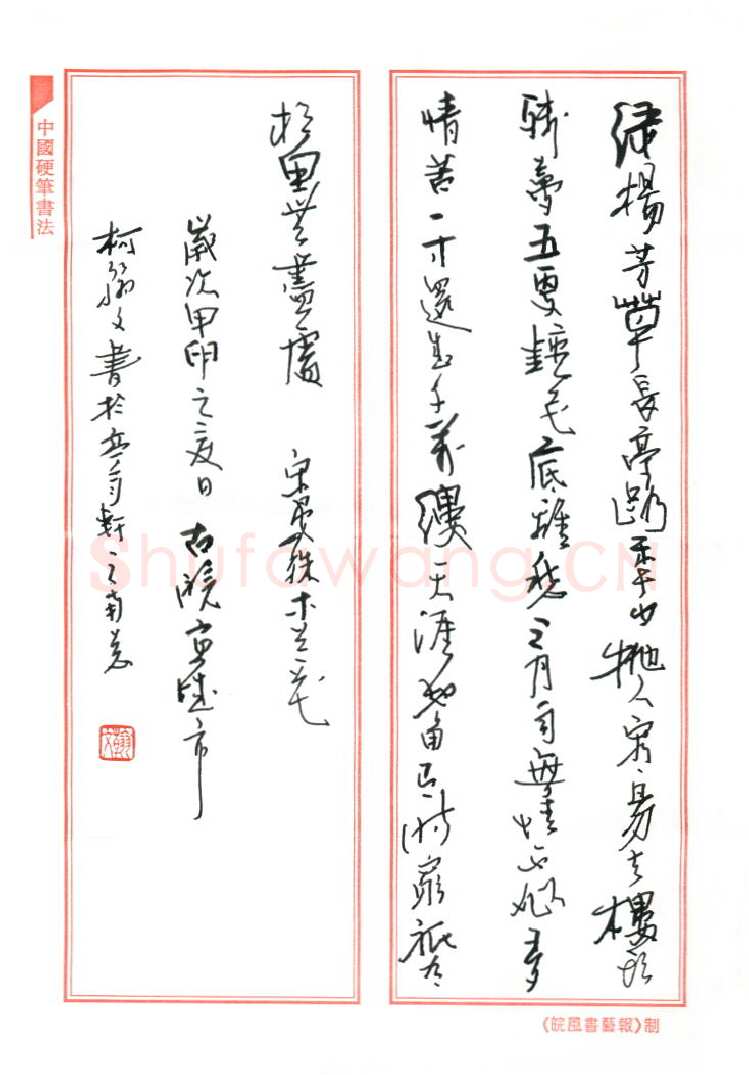 中國硬筆書法
綠楊芳草長亭路年少拋人容易去樓頭
殘夢五更鐘花底離愁三月雨無情不似多
情苦一寸還生千萬縷天涯地角有時窮祇有
相思無盡處 宋晏殊木蘭花
歲次甲卯之夏日 古皖宣城市
柯文書於軒之南窗
《皖風書藝報》制
Shufawang.CN